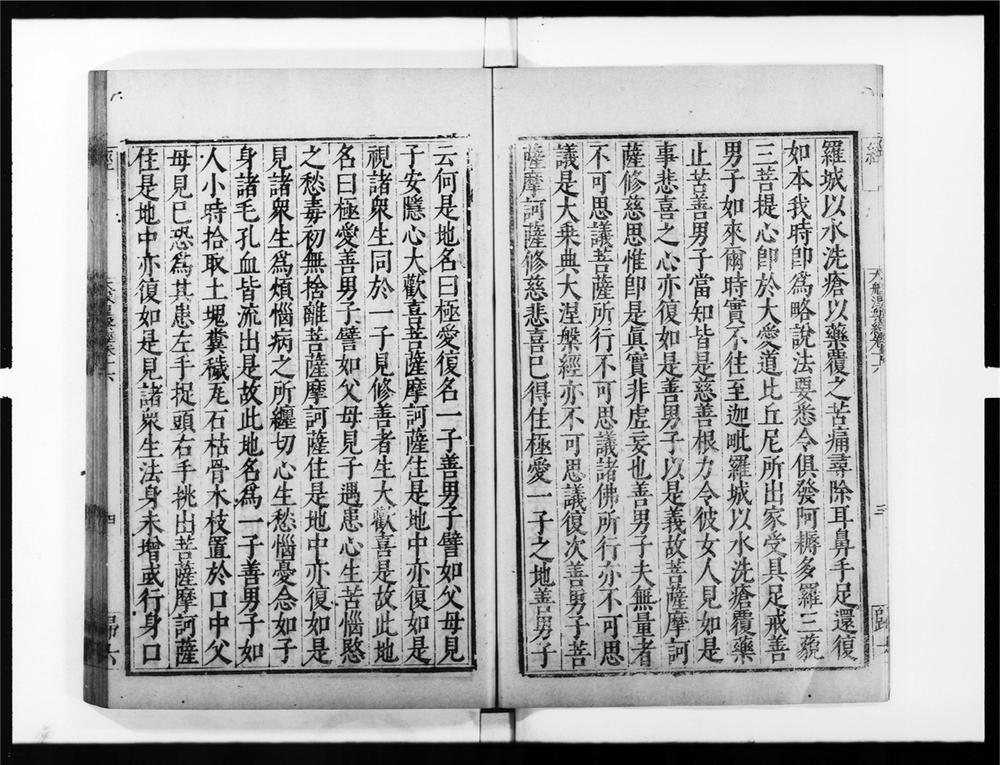 羅城以水洗瘡以藥覆之苦痛尋除耳鼻手足還復
如本我時卽爲略說法要悉令俱發阿耨多羅三藐
三菩提心卽於大愛道比丘尼所出家受具足戒善
男子如來爾時實不往至迦毗羅城以水洗瘡覆藥
止苦善男子當知皆是慈善根力令彼女人見如是
事悲喜之心亦復如是善男子以是義故菩薩摩訶
薩修慈思惟卽是眞實非虛妄也善男子夫無量者
不可思議菩薩所行不可思議諸佛所行亦不可思
議是大乗典大涅槃經亦不可思議復次善男子菩
薩摩訶薩修慈悲喜已得住極愛一子之地善男子
云何是地名曰極愛復名一子善男子譬如父母見
子安隱心大歡喜菩薩摩訶薩住是地中亦復如是
視諸衆生同於一子見修善者生大歡喜是故此地
名曰極愛善男子譬如父母見子遇患心生苦惱愍
之愁毒初無捨離菩薩摩訶薩住是地中亦復如是
見諸衆生爲煩惱病之所纏切心生愁惱憂念如子
身諸毛孔血皆流出是故此地名爲一子善男子如
人小時拾取土塊糞穢瓦石枯骨木枝置於口中父
母見已恐爲其患左手捉頭右手挑出菩薩摩訶薩
住是地中亦復如是見諸衆生法身未增或行身口